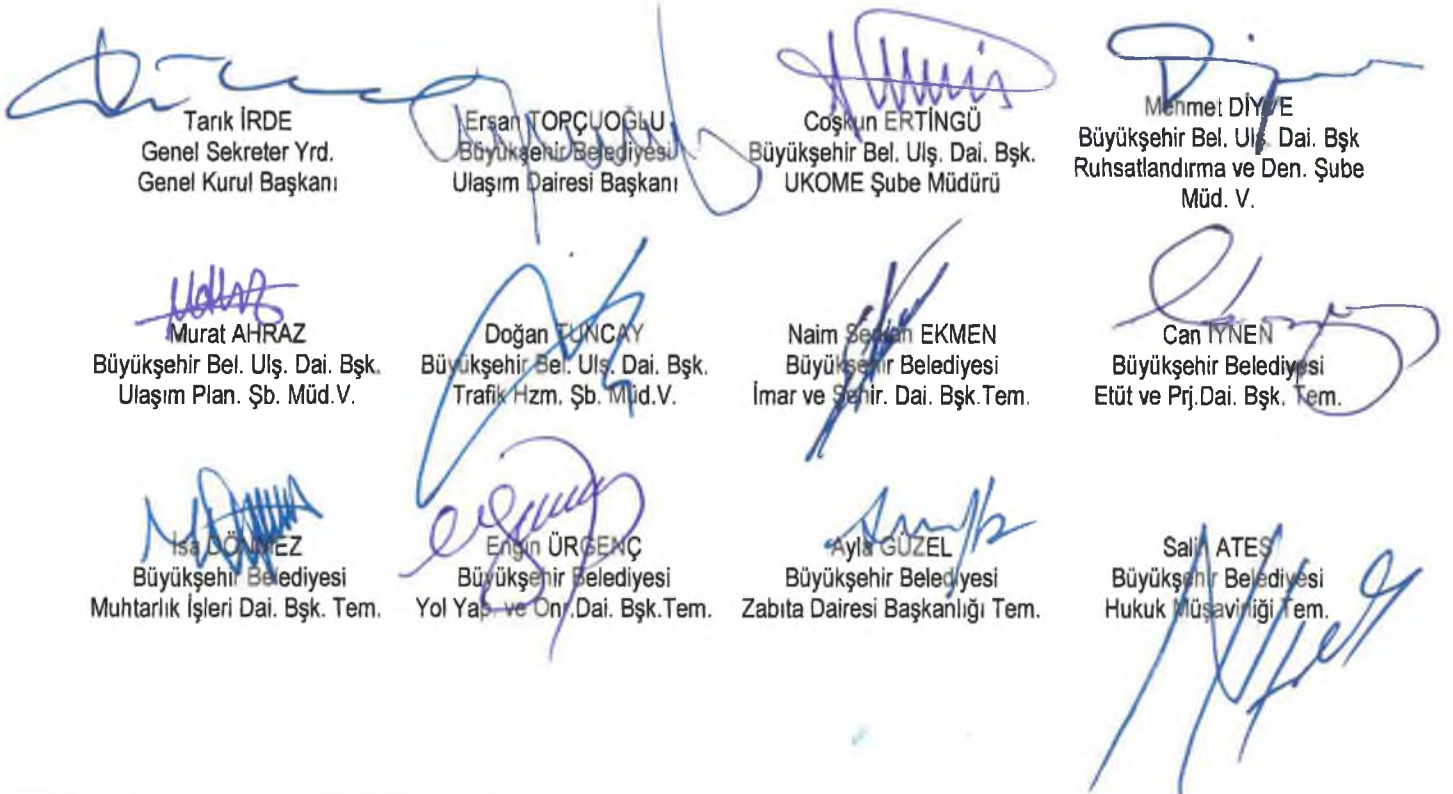 Tarık İRDE
Genel Sekreter Yrd.
Genel Kurul Başkanı
Ersan TOPÇUOĞLU
Büyükşehir Belediyesi
Ulaşım Dairesi Başkanı
Coşkun ERTİNGÜ
Büyükşehir Bel. Ulş. Dai. Bşk.
UKOME Şube Müdürü
Mehmet
Büyükşehir Bel. Ulş. Dai. Bşk
Ruhsatlandırma ve Den. Şube
Müd. V.
Murat AHRAZ
Büyükşehir Bel. Ulş. Dai. Bşk.
Ulaşım Plan. Şb. Müd.V.
Doğan TUNCAY
Büyükşehir Bel. Ulş. Dai. Bşk.
Trafik Hzm. Şb. Müd.V.
Naim Serkan EKMEN
Büyükşehir Belediyesi
İmar ve Şehir. Dai. Bşk.Tem.
Can İYNEN
Büyükşehir Belediyesi
Etüt ve Prj.Dai. Bşk. Tem.
İsa DÖNMEZ
Büyükşehir Belediyesi
Muhtarlık İşleri Dai. Bşk. Tem.
Engin ÜRGENÇ
Büyükşehir Belediyesi
Yol Yap. ve Onr.Dai. Bşk.Tem.
Ayla GÜZEL
Büyükşehir Belediyesi
Zabıta Dairesi Başkanlığı Tem.
Salih ATEŞ
Büyükşehir Belediyesi
Hukuk Müşavirliği Tem.